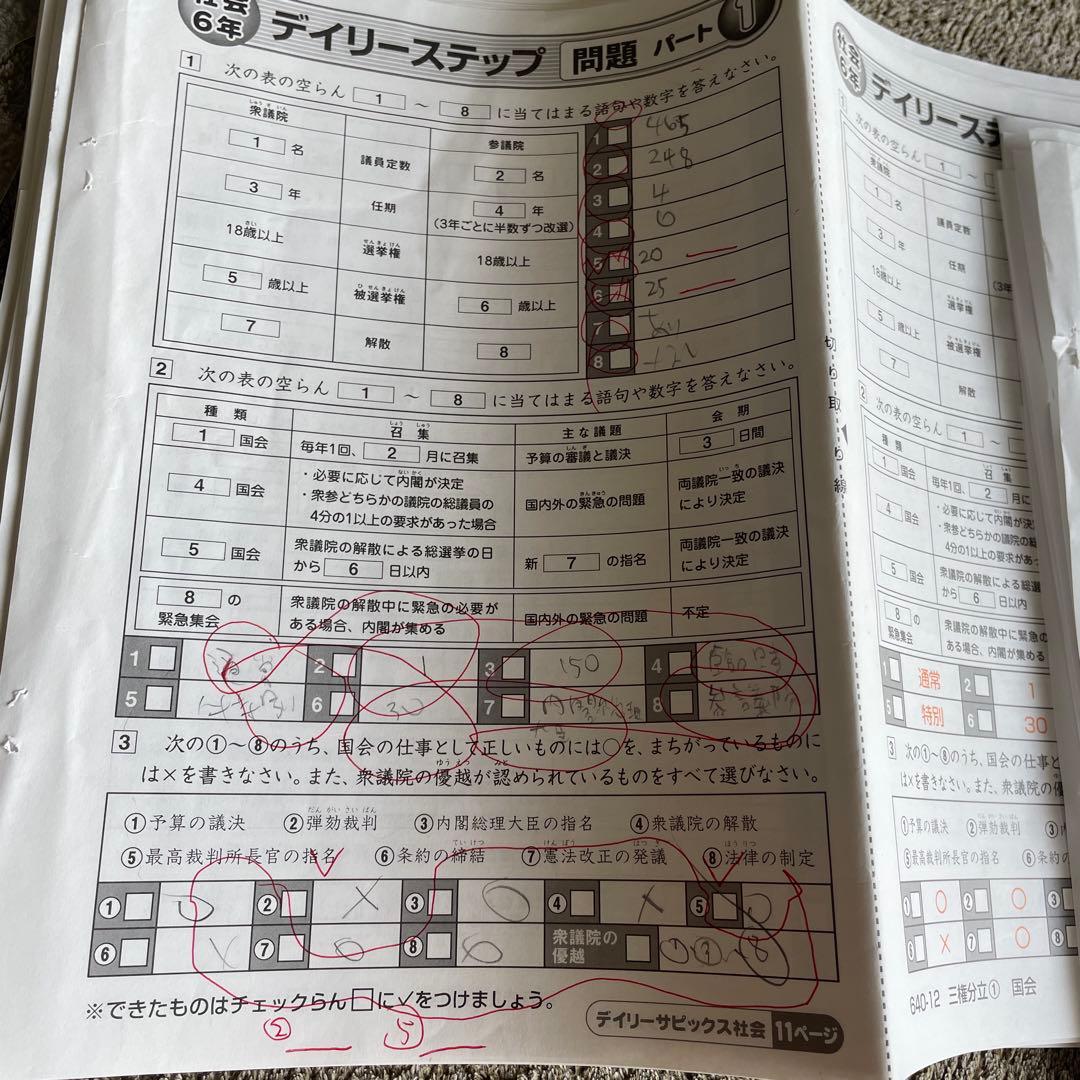 社会
6年
デイリーステップ 問題 パート 1
1 次の表の空らん 1 ～ 8 に当てはまる語句や数字を答えなさい。
衆議院 参議院
1 名 議員定数 2 名
3 年 任期 4 年
(3年ごとに半数ずつ改選)
18歳以上 選挙権 18歳以上
5 歳以上 被選挙権 6 歳以上
7 解散 8
1 465
2 248
3 4
4 6
5 20
6 25
7 あり
8 なし
2 次の表の空らん 1 ～ 8 に当てはまる語句や数字を答えなさい。
種類 召集 主な議題 会期
1 国会 毎年1回、 2 月に召集 予算の審議と議決 3 日間
4 国会 ・必要に応じて内閣が決定
・衆参どちらかの議院の総議員の
4分の1以上の要求があった場合
国内外の緊急の問題
両議院一致の議決
により決定
5 国会 衆議院の解散による総選挙の日
から 6 日以内
新 7 の指名
両議院一致の議決
により決定
8 の
緊急集会
衆議院の解散中に緊急の必要が
ある場合、内閣が集める
国内外の緊急の問題 不定
1 通常 2 1 3 150 4 臨時
5 特別 6 30 7 内閣総理大臣 8 参議院
3 次の①～⑧のうち、国会の仕事として正しいものには○を、まちがっているものに
は×を書きなさい。また、衆議院の優越が認められているものをすべて選びなさい。
①予算の議決 ②弾劾裁判 ③内閣総理大臣の指名 ④衆議院の解散
⑤最高裁判所長官の指名 ⑥条約の締結 ⑦憲法改正の発議 ⑧法律の制定
① ○ ② × ③ ○ ④ × ⑤ ○
⑥ × ⑦ ○ ⑧ ○ 衆議院の
優越
※できたものはチェックらん□に✓をつけましょう。
② ⑤
デイリーサピックス社会 11ページ
切り取り線
社会
6年
デイリーステ
次の表の空らん 1 ～
衆議院
1 名 議員定数
3 年 任期
(3年
18歳以上 選挙権
5 歳以上 被選挙権
7 解散
2 次の表の空らん 1 ～
種類 召集
1 国会 毎年1回、 2 月に
4 国会 ・必要に応じて内閣が決
・衆参どちらかの議院の総
4分の1以上の要求があっ
5 国会 衆議院の解散による総選
から 6 日以内
8 の
緊急集会
衆議院の解散中に緊急の
ある場合、内閣が集める
1 通常 2 1
5 特別 6 30
3 次の①～⑧のうち、国会の仕事と
は×を書きなさい。また、衆議院の優
①予算の議決 ②弾劾裁判 ③内
⑤最高裁判所長官の指名 ⑥条約の
① ○ ② ○ ③
⑥ × ⑦ ○ ⑧
640-12 三権分立① 国会